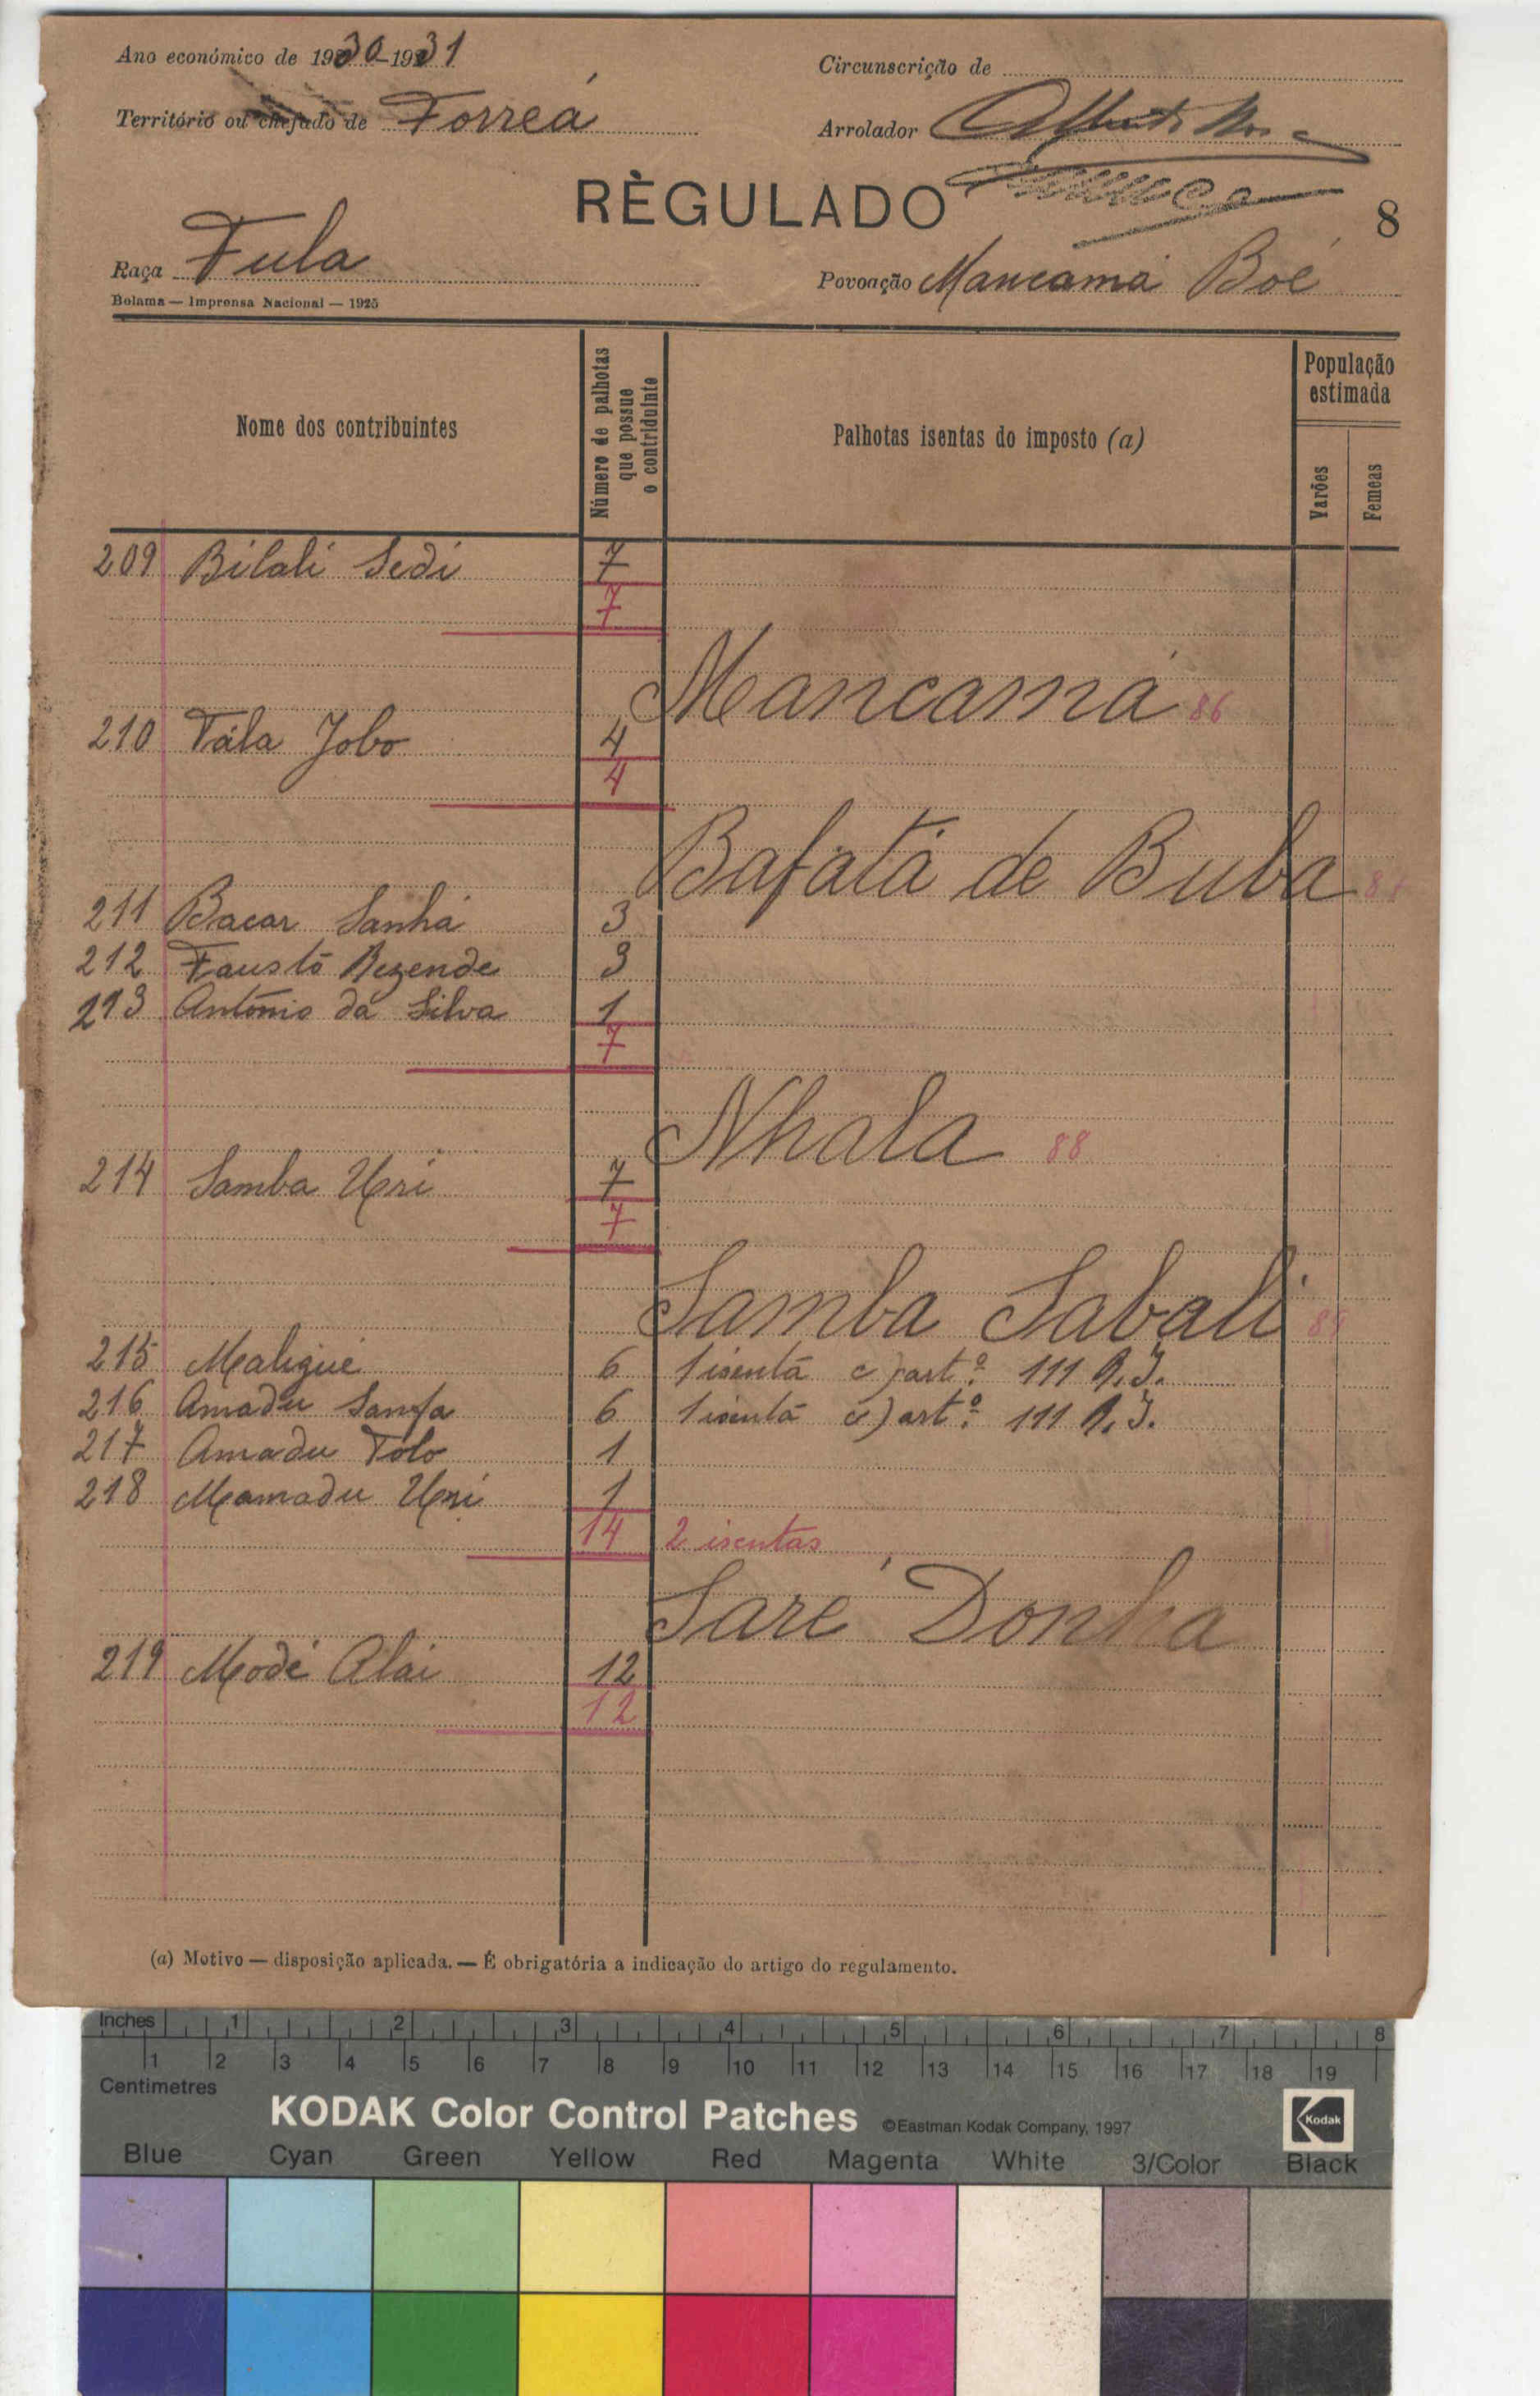 Ano económico de 1930-1931
Circunscrição de
Território ou chefado de Forreá
Arrolador
RÈGULADO
8
Raça Fula
Povoação Mancamá Boé
Bolama — Imprensa Nacional — 1925
Nome dos contribuintes
Número de palhotas
que possue
o contriduinte
Palhotas isentas do imposto (a)
População
estimada
Varões
Femeas
209 Bilali Sedi 7
7
Mancamá 86
210 Tála Jobo 4
4
Bafatá de Buba
211 Bacar Sanhá 3
212 Fausto Rezende 3
213 António da Silva 1
7
Nhala 88
214 Samba Uri 7
7
Samba Sabali
215 Maliguê 6 1 isenta c) artº. 111 R. I.
216 Amadu Sanfa 6 1 isenta c) artº. 111 R. I.
217 Amadu Tolo 1
218 Mamadu Uri 1
14 2 isentas
Saré Donha
219 Modé Alai 12
12
(a) Motivo — disposição aplicada. — É obrigatória a indicação do artigo do regulamento.
Inches 1 2 3 4 5 6 7 8
1 2 3 4 5 6 7 8 9 10 11 12 13 14 15 16 17 18 19
Centimetres
KODAK Color Control Patches ©Eastman Kodak Company, 1997 Kodak
Blue Cyan Green Yellow Red Magenta White 3/Color Black